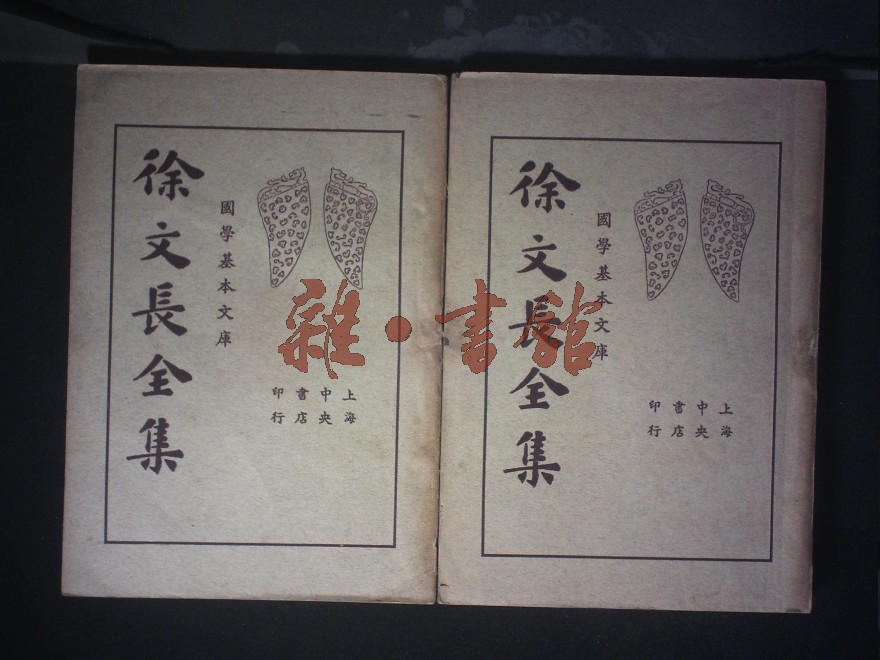 徐文長全集
國學基本文庫
上海
中央
書店
印行
徐文長全集
國學基本文庫
上海
中央
書店
印行
雜·書館